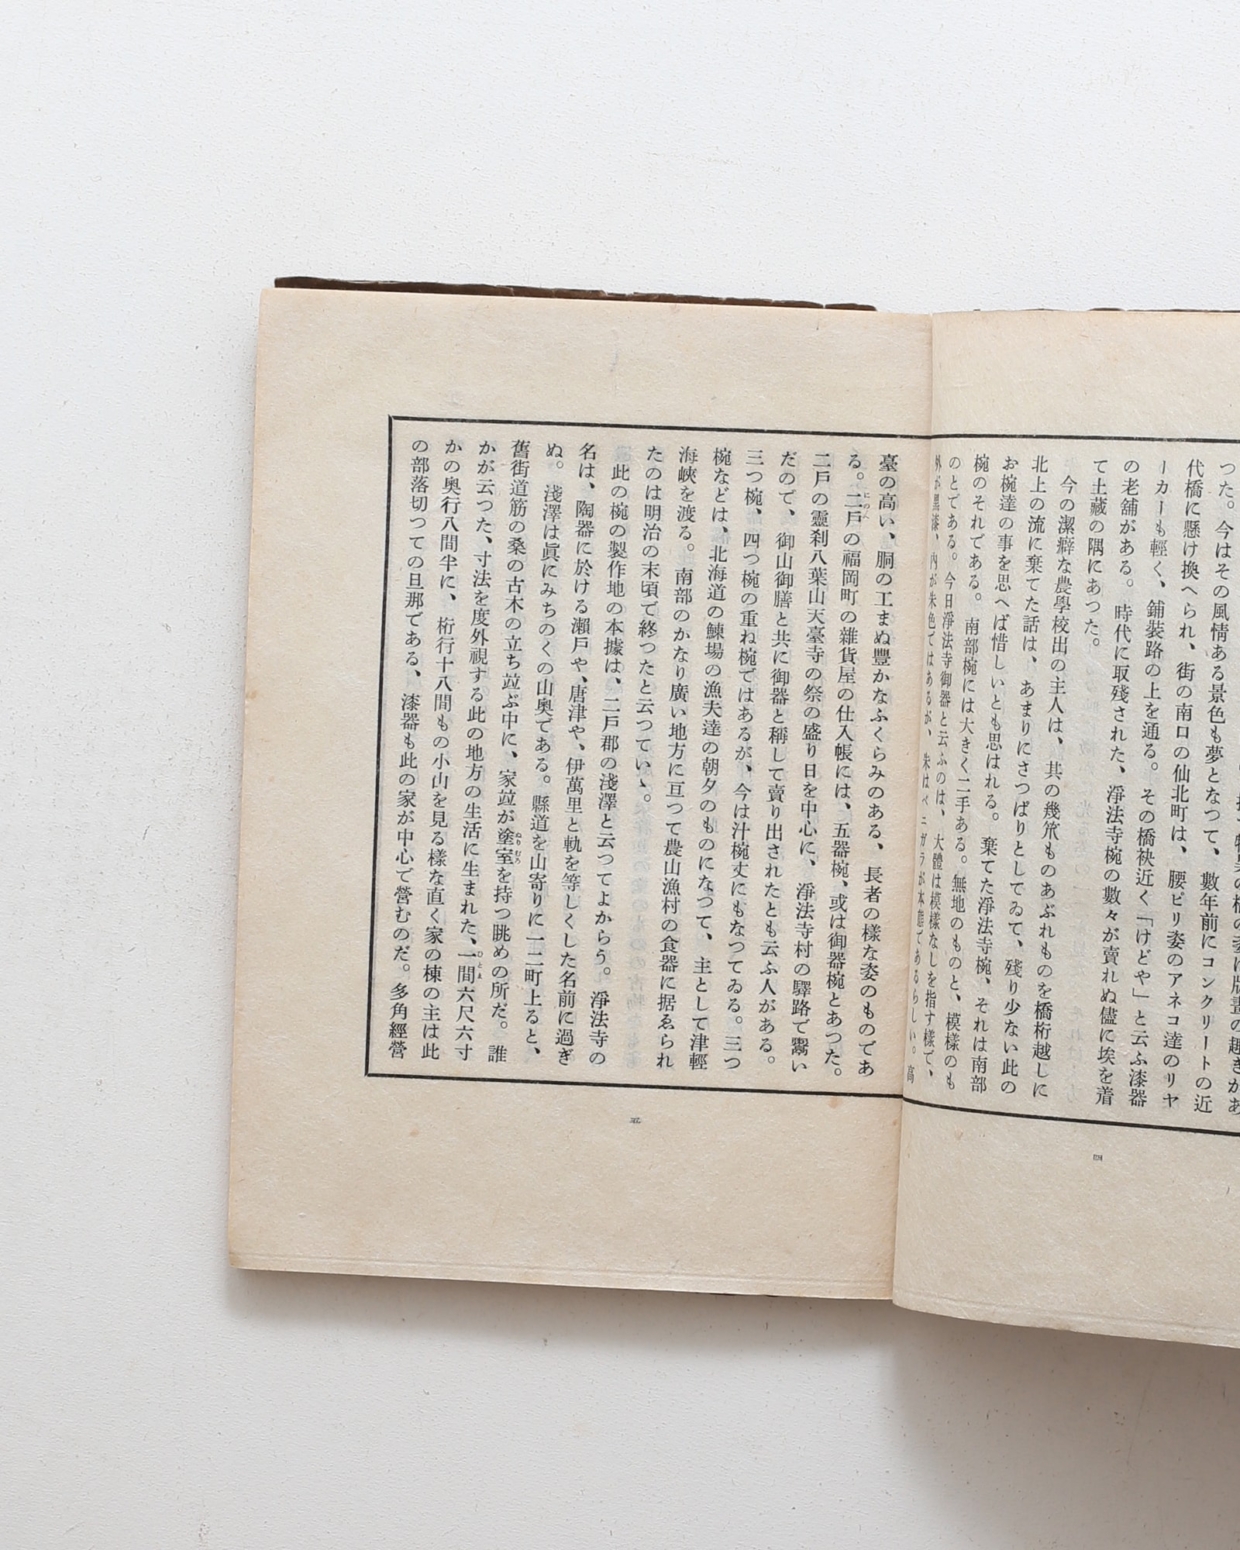 つた。今はその風情ある景色も夢となつて、數年前にコンクリートの近
代橋に懸け換へられ、街の南口の仙北町は、腰ビリ姿のアネコ達のリヤ
ーカーも輕く、鋪裝路の上を通る。その橋袂近く「けどや」と云ふ漆器
の老舗がある。時代に取殘された、淨法寺椀の數々が賣れぬ儘に埃を着
て土藏の隅にあつた。
今の潔癖な農學校出の主人は、其の幾笊ものあぶれものを橋桁越しに
北上の流に棄てた話は、あまりにさつぱりとしてゐて、殘り少ない此の
お椀達の事を思へば惜しいとも思はれる。棄てた淨法寺椀、それは南部
椀のそれである。南部椀には大きく二手ある。無地のものと、模樣のも
のとである。今日淨法寺御器と云ふのは、大體は模樣なしを指す樣で、
外が黑漆、内が朱色ではあるが、朱はベニガラが本體であるらしい。高
四
臺の高い、胴の工まぬ豐かなふくらみのある、長者の樣な姿のものであ
る。二戸の福岡町の雜貨屋の仕入帳には、五器椀、或は御器椀とあつた。
二戸の靈刹八葉山天臺寺の祭の盛り日を中心に、淨法寺村の驛路で鬻い
だので、御山御膳と共に御器と稱して賣り出されたとも云ふ人がある。
三つ椀、四つ椀の重ね椀ではあるが、今は汁椀丈にもなつてゐる。三つ
椀などは、北海道の鰊場の漁夫達の朝夕のものになつて、主として津輕
海峽を渡る。南部のかなり廣い地方に亙つて農山漁村の食器に据ゑられ
たのは明治の末頃で終つたと云つていゝ。
此の椀の製作地の本據は、二戸郡の淺澤と云つてよからう。淨法寺の
名は、陶器に於ける瀨戸や、唐津や、伊萬里と軌を等しくした名前に過ぎ
ぬ。淺澤は眞にみちのくの山奧である。縣道を山寄りに一二町上ると、
舊街道筋の桑の古木の立ち竝ぶ中に、家竝が塗室を持つ眺めの所だ。誰
かが云つた、寸法を度外視する此の地方の生活に生まれた、一間六尺六寸
かの奧行八間半に、桁行十八間もの小山を見る樣な直く家の棟の主は此
の部落切つての旦那である、漆器も此の家が中心で營むのだ。多角經營
五